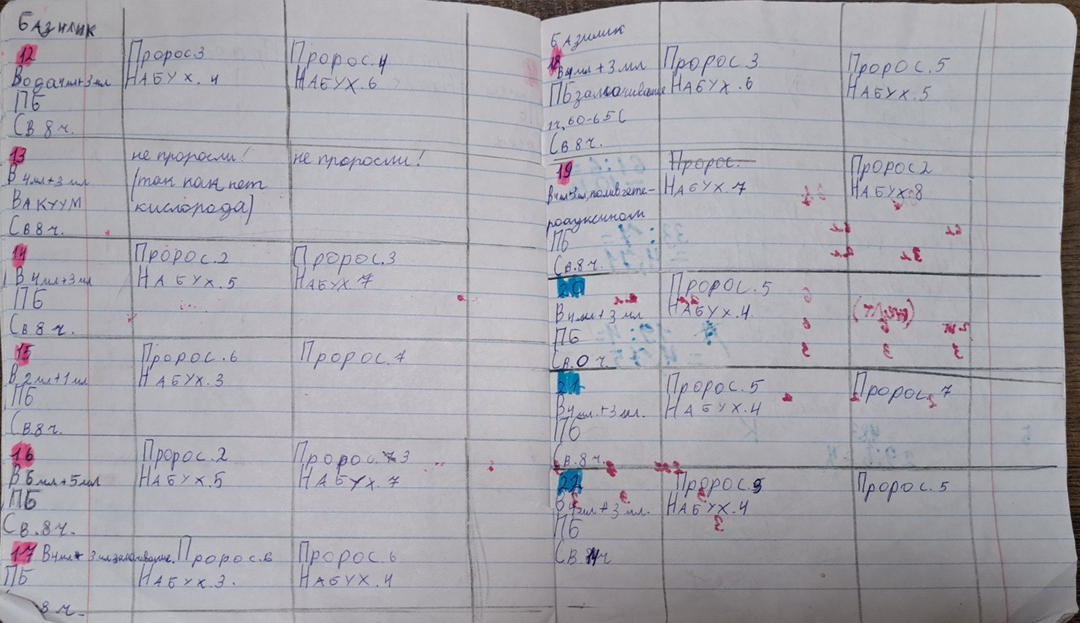 Базилик
12
Вода4мл+3мл
ПБ
Св.8ч.
Пророс3
Набух.4
Пророс.4
Набух.6
13
В 4мл+3мл
Вакуум
Св8ч.
не проросли!
(так как нет
кислорода)
не проросли!
14
В 4мл+3мл
ПБ
Св 8ч.
Пророс.2
Набух.5
Пророс.3
Набух.7
15
В 2мл+1мл
ПБ
Св.8ч.
Пророс.6
Набух.3
Пророс.7
16
В 6мл+5мл
ПБ
Св.8ч.
Пророс.2
Набух.5
Пророс.3
Набух.7
17 В4мл+3мл
ПБ
8ч.
Пророс.6
Набух.3.
Пророс.6
Набух.4
Базилик
18
В4мл+3мл
ПБзамачивание
60-65С
Св 8ч.
Пророс.3
Набух.6
Пророс.5
Набух.5
19
полив гете-
роауксином
ПБ
Св.8ч.
Пророс.
Набух.7
Пророс2
Набух.8
20
В4мл+3мл
ПБ
Св.0ч.
Пророс.5
Набух.4.
21
В4мл.+3мл.
ПБ
Св.8ч.
Пророс.5
Набух.4
Пророс.7
22
В4мл+3мл.
ПБ
Св.14ч
Пророс.5
Набух.4
Пророс.5